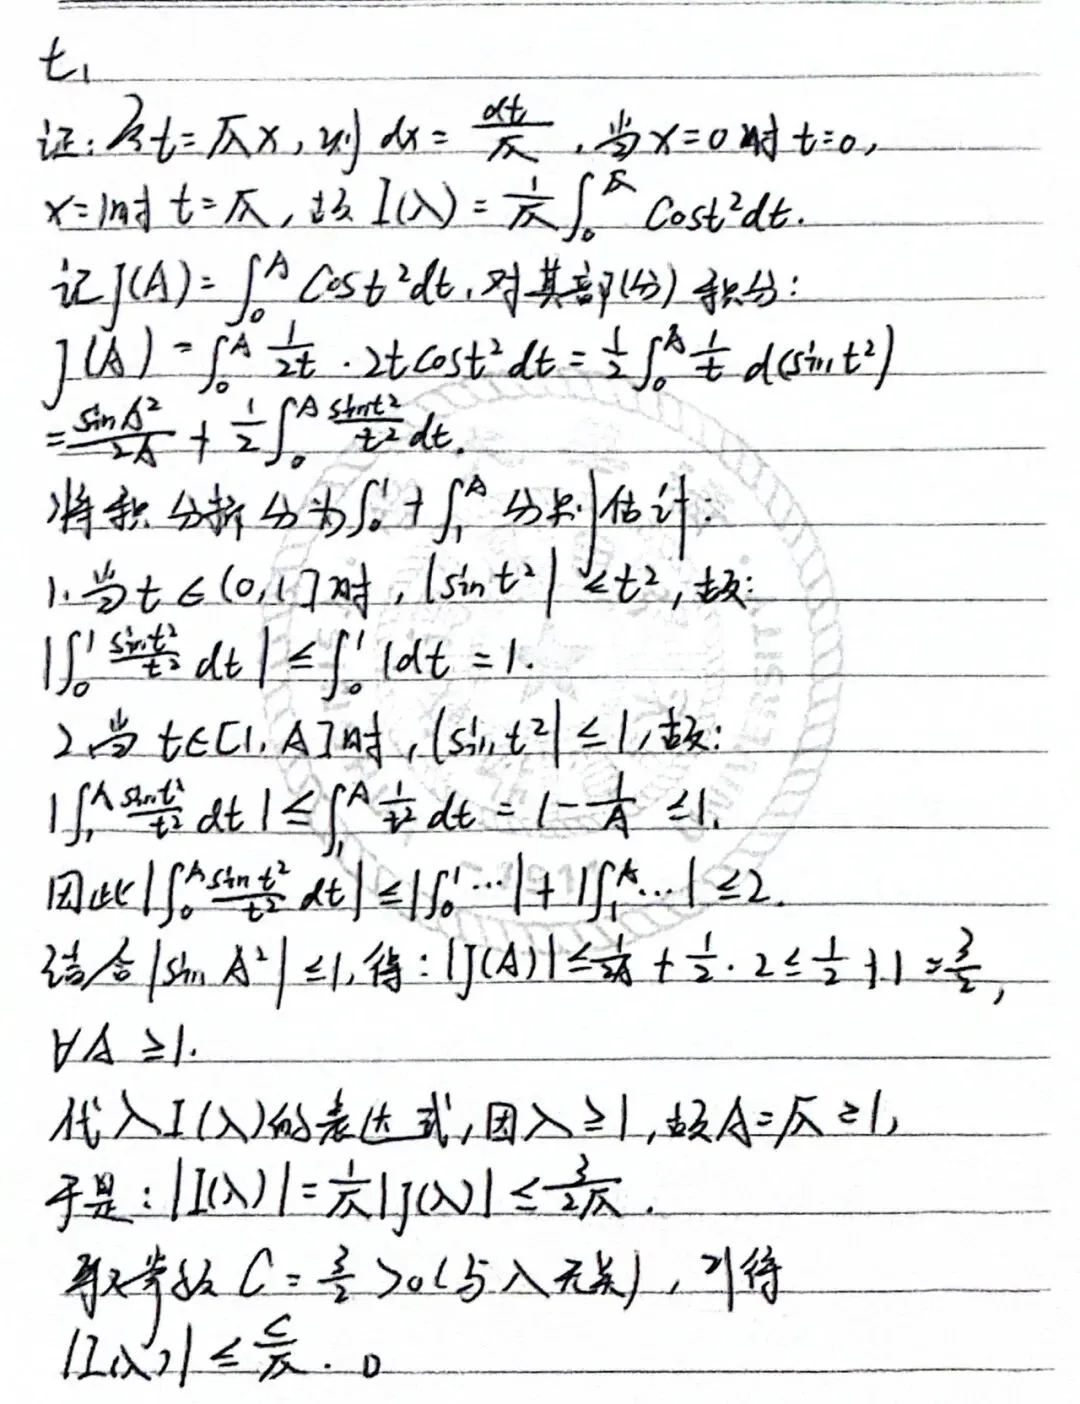 t₁
证：令t=√λx，则 dx=dt/√λ，当x=0时 t=0，
x=1时 t=√λ，故 I(λ)=1/√λ∫₀^√λ Cost²dt.
记J(A)=∫₀^A Cost²dt，对其部(分)积分：
J(A)=∫₀^A 1/2t · 2tcost²dt=1/2∫₀^A 1/t d(sint²)
=sinA²/2A+1/2∫₀^A sint²/t² dt.
将积分拆分为∫₀¹+∫₁^A 分别估计：
1. 当t∈(0,1]时，|sint²|≤t²，故：
|∫₀¹ sint²/t² dt|≤∫₀¹ 1dt=1.
2 当 t∈[1,A]时，|sint²|≤1，故：
|∫₁^A sint²/t² dt|≤∫₁^A 1/t² dt=1-1/A≤1.
因此|∫₀^A sint²/t² dt|≤|∫₀¹…|+|∫₁^A…|≤2.
结合|sinA²|≤1，得：|J(A)|≤1/2A+1/2·2≤1/2+1=3/2，
∀A≥1.
代入I(λ)的表达式，因λ≥1，故A=√λ≥1，
于是：|I(λ)|=1/√λ|J(λ)|≤3/2√λ.
取常数 C=3/2>0(与λ无关)，可得
|I(λ)|≤C/√λ. □
UNIVERSIT